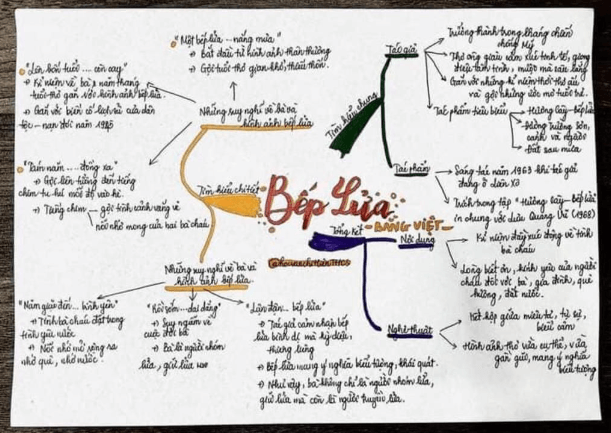 Bếp Lửa
- BẰNG VIỆT -
Tìm hiểu chung
Tác giả
Trưởng thành trong kháng chiến
chống Mỹ
Thơ ông giàu cảm xúc tinh tế, giọng
điệu tâm tình, mượt mà sâu lắng
Gắn với những kỉ niệm thời thơ ấu
và gợi những ước mơ tuổi trẻ.
Tác phẩm tiêu biểu
Hương cây - Bếp lửa
Đường Trường Sơn,
cảnh và người
Đất sau mưa
Tác phẩm
Sáng tác năm 1963 khi tác giả
đang ở Liên Xô
Trích trong tập "Hương Cây - Bếp lửa"
in chung với Lưu Quang Vũ (1968)
Tìm hiểu chi tiết
Những suy nghĩ về bà và
hình ảnh bếp lửa
"Một bếp lửa ... nắng mưa"
→ Bắt đầu từ hình ảnh thân thương
→ Gợi tuổi thơ gian khổ, thiếu thốn.
"Lên bốn tuổi .... còn cay"
→ Kỉ niệm về bà & năm tháng
tuổi thơ gắn với hình ảnh bếp lửa.
→ Gắn với biến cố lịch sử của dân
tộc - nạn đói năm 1945
"Tám năm .... đồng xa"
→ Gợi liên tưởng đến tiếng
chim tu hú mỗi độ vào hè.
→ Tiếng chim - gợi tình cảnh vắng vẻ
và nỗi nhớ mong của hai bà cháu
Những suy nghĩ về bà và
hình ảnh bếp lửa
"Năm giặc đốt ... bình yên"
→ Tình bà cháu đặt trong
tình yêu nước
→ Nỗi nhớ mở rộng ra
nhớ quê, nhớ nước.
"Rồi sớm ... dai dẳng"
→ Suy ngẫm về
cuộc đời bà
→ Bà là người nhóm
lửa, giữ lửa
"Lận đận ... bếp lửa"
→ Tác giả cảm nhận bếp
lửa bình dị mà kỳ diệu,
thiêng liêng
→ Bếp lửa mang ý nghĩa biểu tượng, khái quát.
→ Như vậy, bà không chỉ là người nhóm lửa,
giữ lửa mà còn là người truyền lửa.
Tổng kết
Nội dung
Kỉ niệm đầy xúc động về tình
bà cháu
Lòng biết ơn, kính yêu của người
cháu đối với bà, gia đình, quê
hương, đất nước.
Nghệ thuật
Kết hợp giữa miêu tả, tự sự,
biểu cảm
Hình ảnh thơ vừa cụ thể, vừa
gần gũi, mang ý nghĩa
biểu tượng